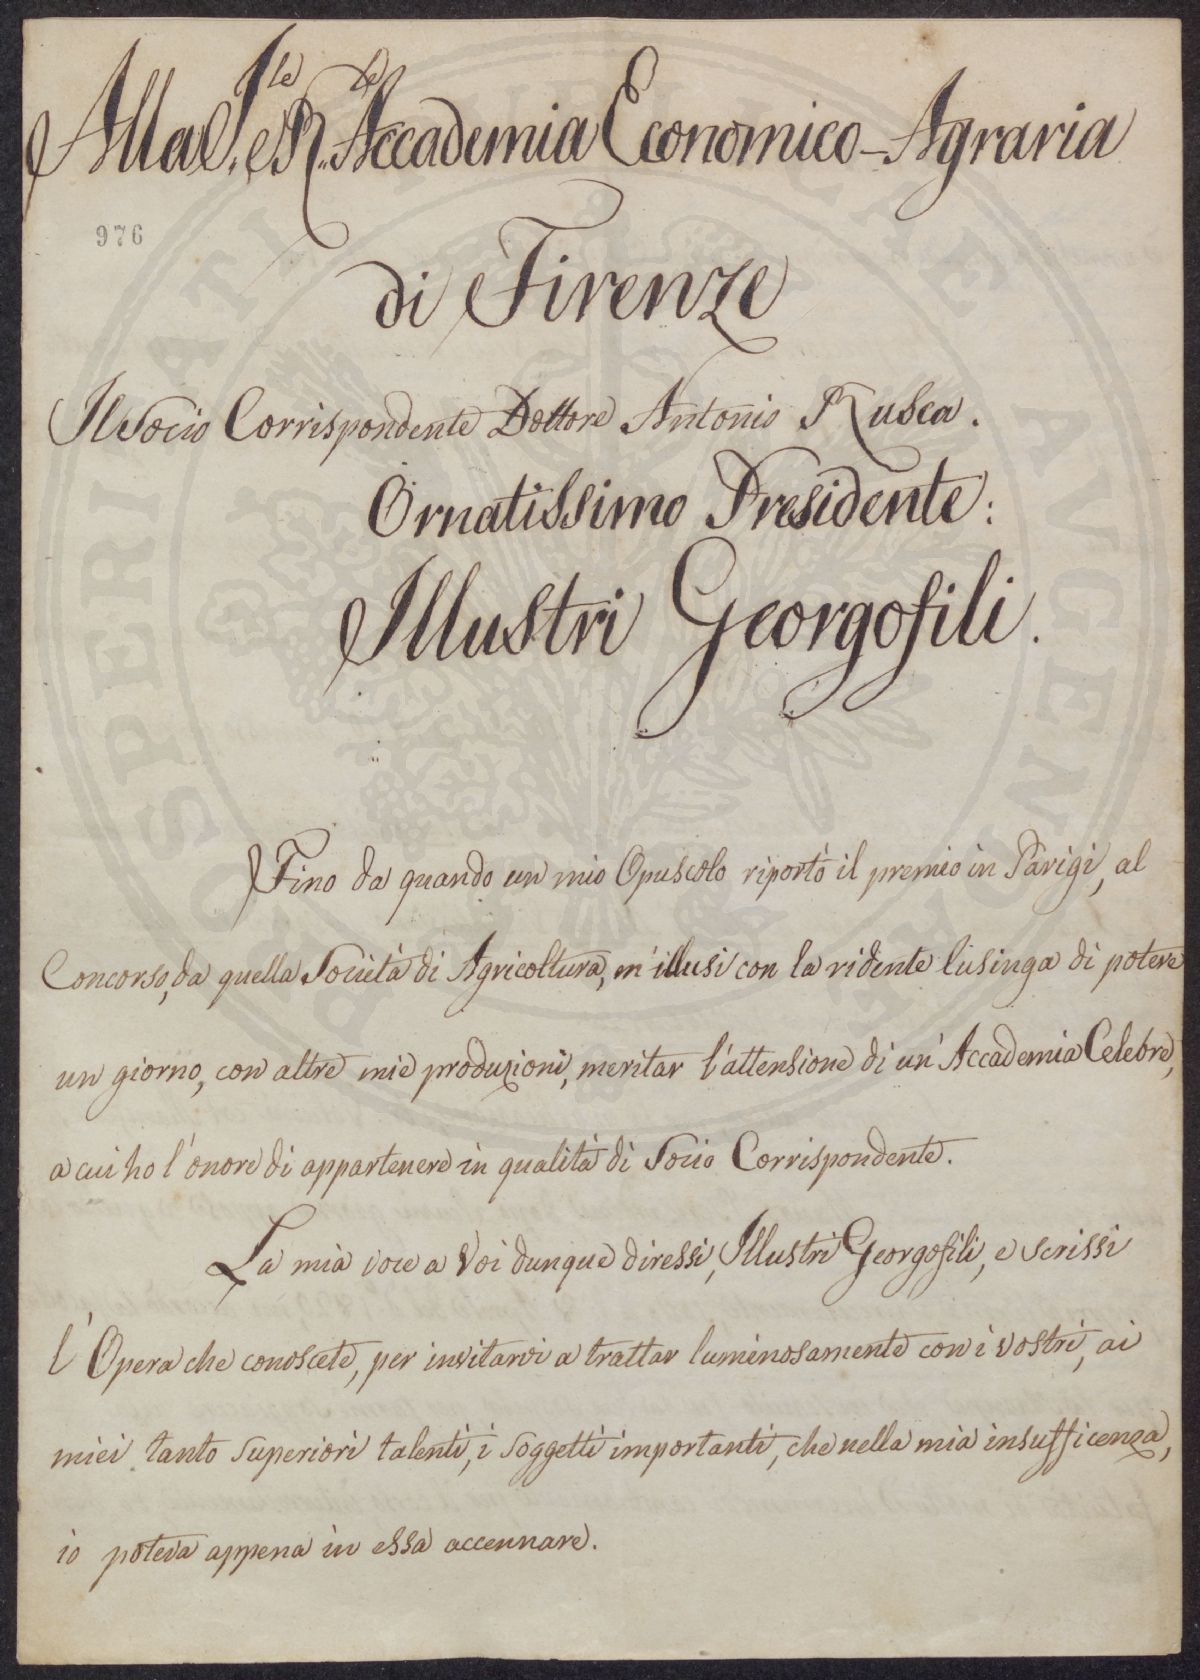 Alla I.le e R.le Accademia Economico-Agraria
976
di Firenze
Il Socio Corrispondente Dottore Antonio Rusca.
Ornatissimo Presidente:
Illustri Georgofili.
Fino da quando un mio Opuscolo riportò il premio in Parigi, al
Concorso, da quella Società di Agricoltura, m'illusi con la ridente lusinga di potere
un giorno, con altre mie produzioni, meritar l'attensione di un'Accademia Celebre,
a cui ho l'onore di appartenere in qualità di Socio Corrispondente.
La mia voce a Voi dunque diressi, Illustri Georgofili, e scrissi
l'Opera che conoscete, per invitarvi a trattar luminosamente con i vostri, ai
miei tanto superiori talenti, i soggetti importanti, che nella mia insufficenza,
io poteva appena in essa accennare.
PROSPERITATI PUBLICAE AUGENDAE